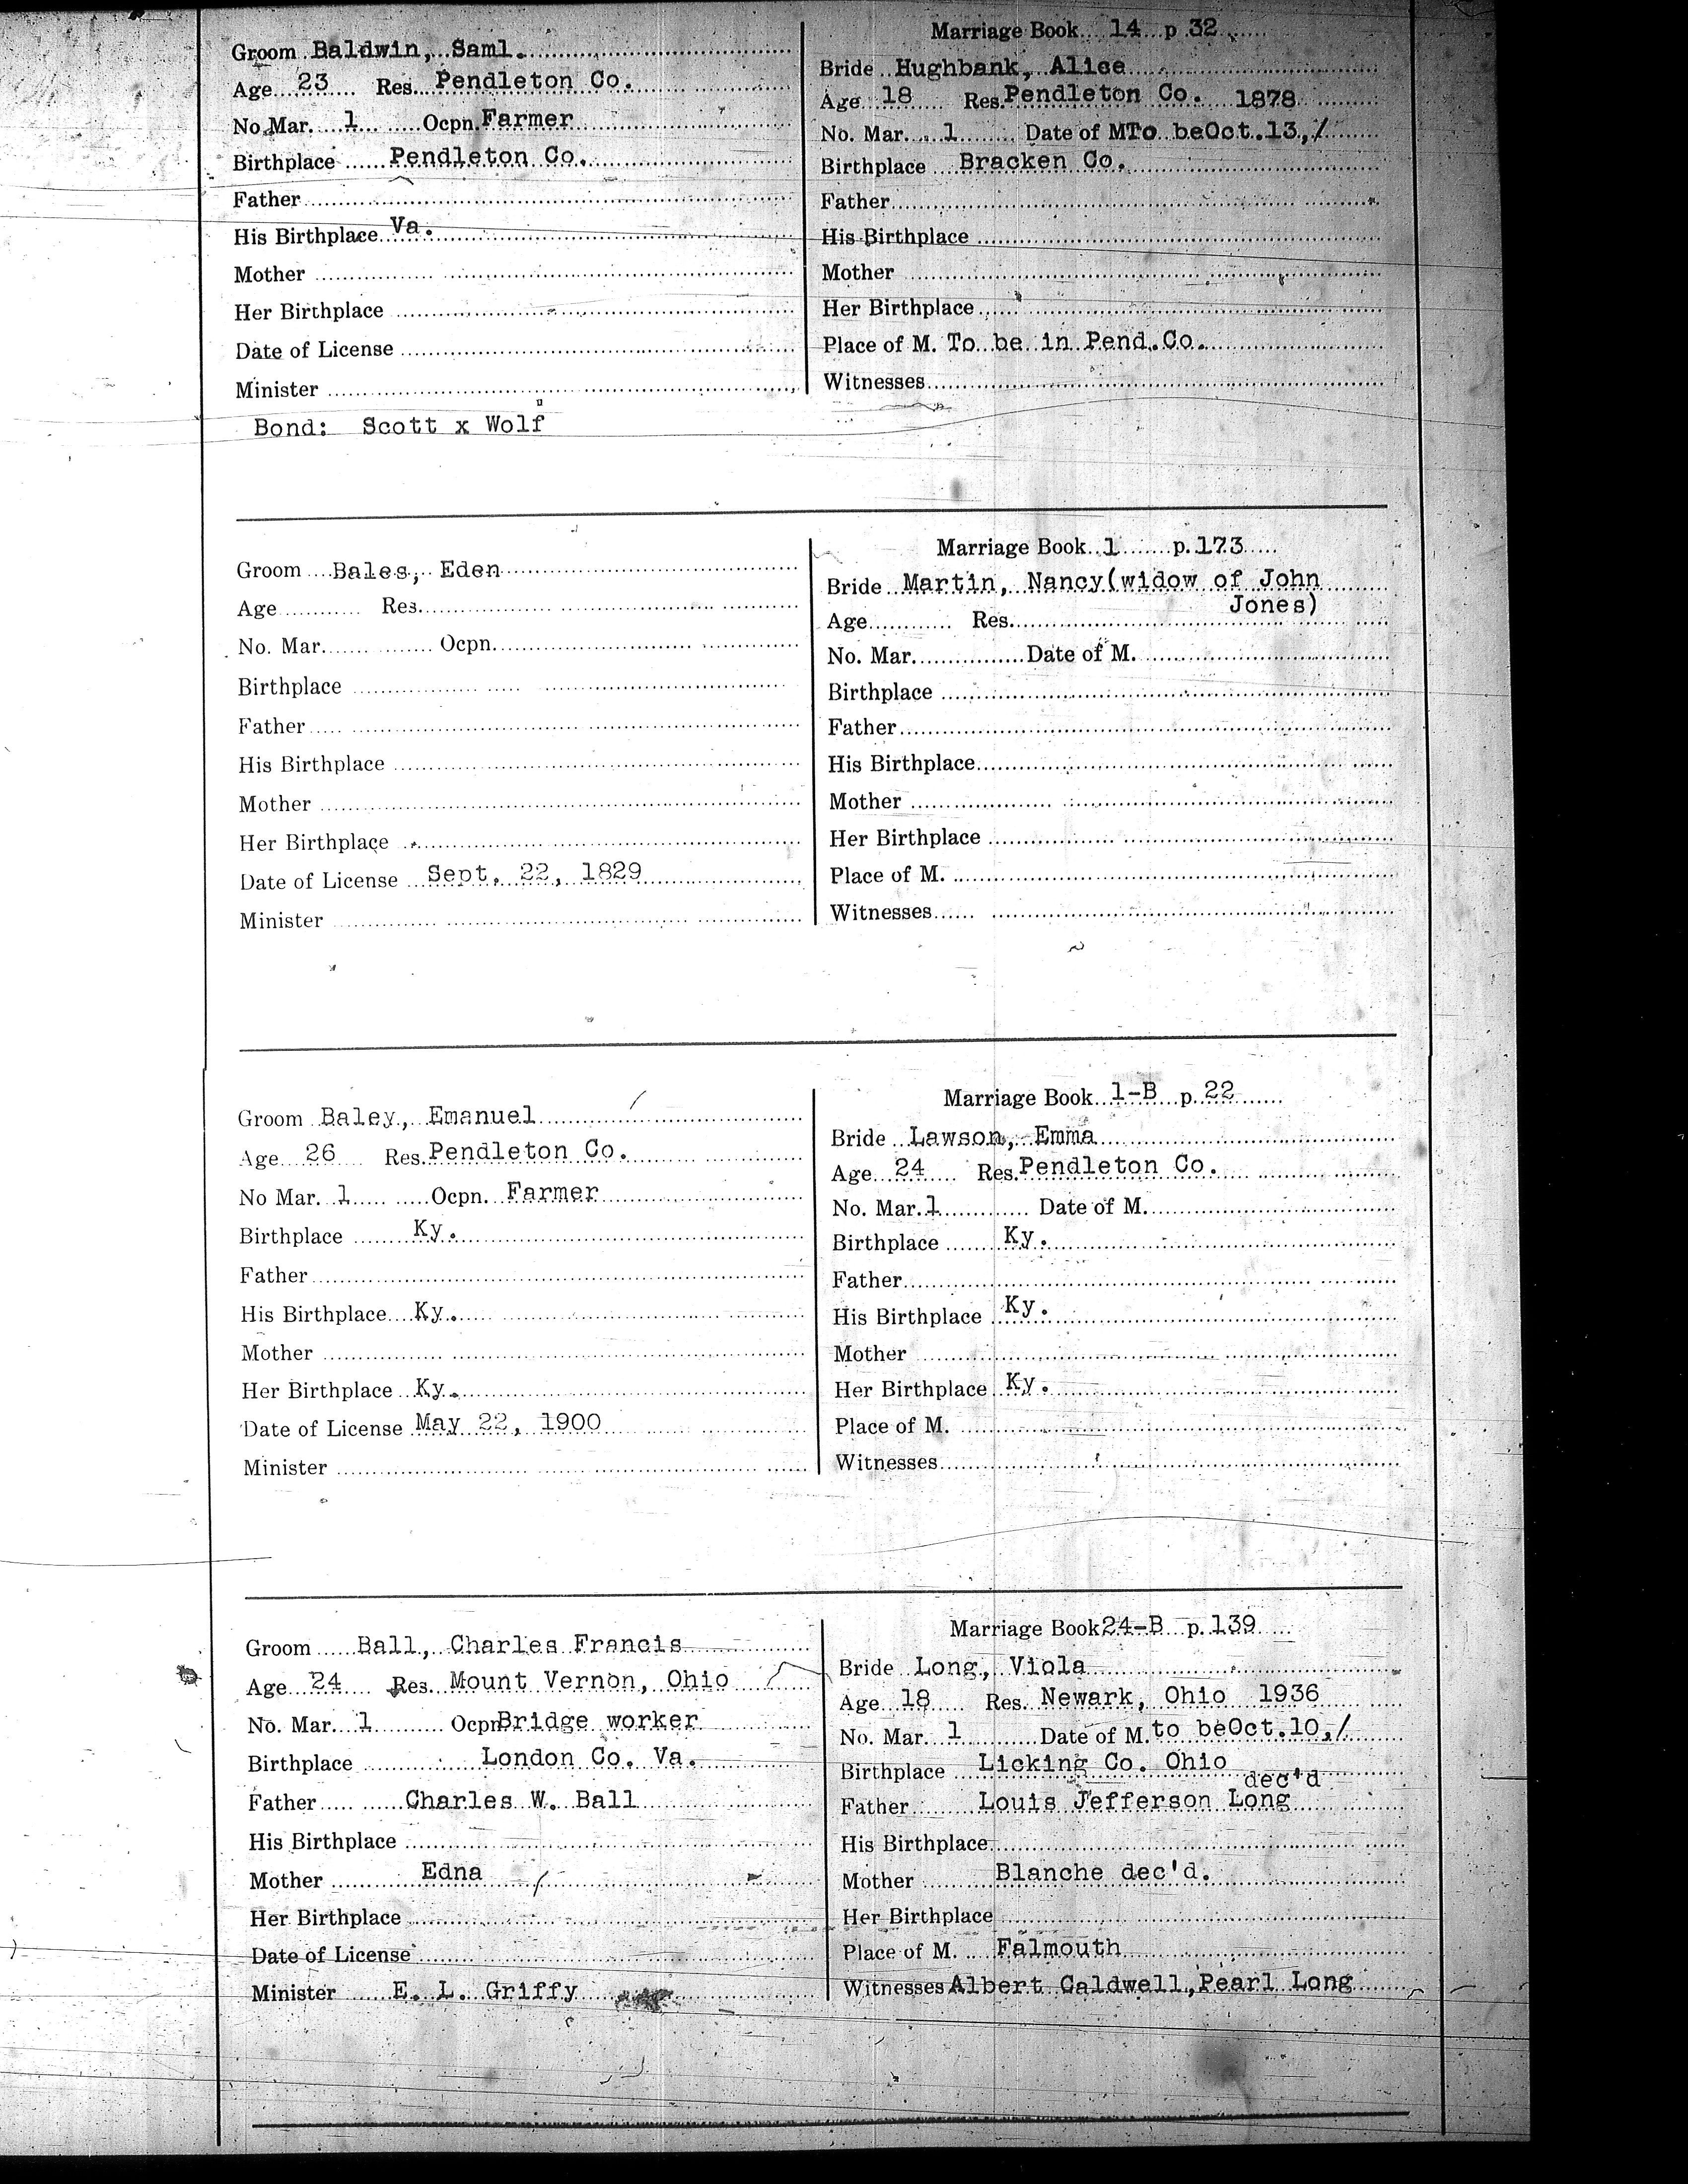 Marriage Book 14 p 32
Groom Baldwin, Saml.
Age 23 Res. Pendleton Co.
No. Mar. 1 Ocpn. Farmer
Birthplace Pendleton Co.
Father
His Birthplace Va.
Mother
Her Birthplace
Date of License
Minister
Bride Hughbank, Alice
Age 18 Res. Pendleton Co. 1878
No. Mar. 1 Date of M To be Oct. 13, /
Birthplace Bracken Co.
Father
His Birthplace
Mother
Her Birthplace
Place of M. To be in Pend. Co.
Witnesses
Bond: Scott x Wolf
Marriage Book 1 p. 173
Groom Bales, Eden
Age Res.
No. Mar. Ocpn.
Birthplace
Father
His Birthplace
Mother
Her Birthplace
Date of License Sept. 22, 1829
Minister
Bride Martin, Nancy (widow of John
Jones)
Age Res.
No. Mar. Date of M.
Birthplace
Father
His Birthplace
Mother
Her Birthplace
Place of M.
Witnesses
Marriage Book 1-B p. 22
Groom Baley, Emanuel
Age 26 Res. Pendleton Co.
No Mar. 1 Ocpn. Farmer
Birthplace Ky.
Father
His Birthplace Ky.
Mother
Her Birthplace Ky.
Date of License May 22, 1900
Minister
Bride Lawson, Emma
Age 24 Res. Pendleton Co.
No. Mar. 1 Date of M.
Birthplace Ky.
Father
His Birthplace Ky.
Mother
Her Birthplace Ky.
Place of M.
Witnesses
Marriage Book 24-B p. 139
Groom Ball, Charles Francis
Age 24 Res. Mount Vernon, Ohio
No. Mar. 1 Ocpn Bridge worker
Birthplace London Co. Va.
Father Charles W. Ball
His Birthplace
Mother Edna
Her Birthplace
Date of License
Minister E. L. Griffy
Bride Long, Viola
Age 18 Res. Newark, Ohio 1936
No. Mar. 1 Date of M. to be Oct. 10, /
Birthplace Licking Co. Ohio
dec'd
Father Louis Jefferson Long
His Birthplace
Mother Blanche dec'd.
Her Birthplace
Place of M. Falmouth
Witnesses Albert Caldwell, Pearl Long